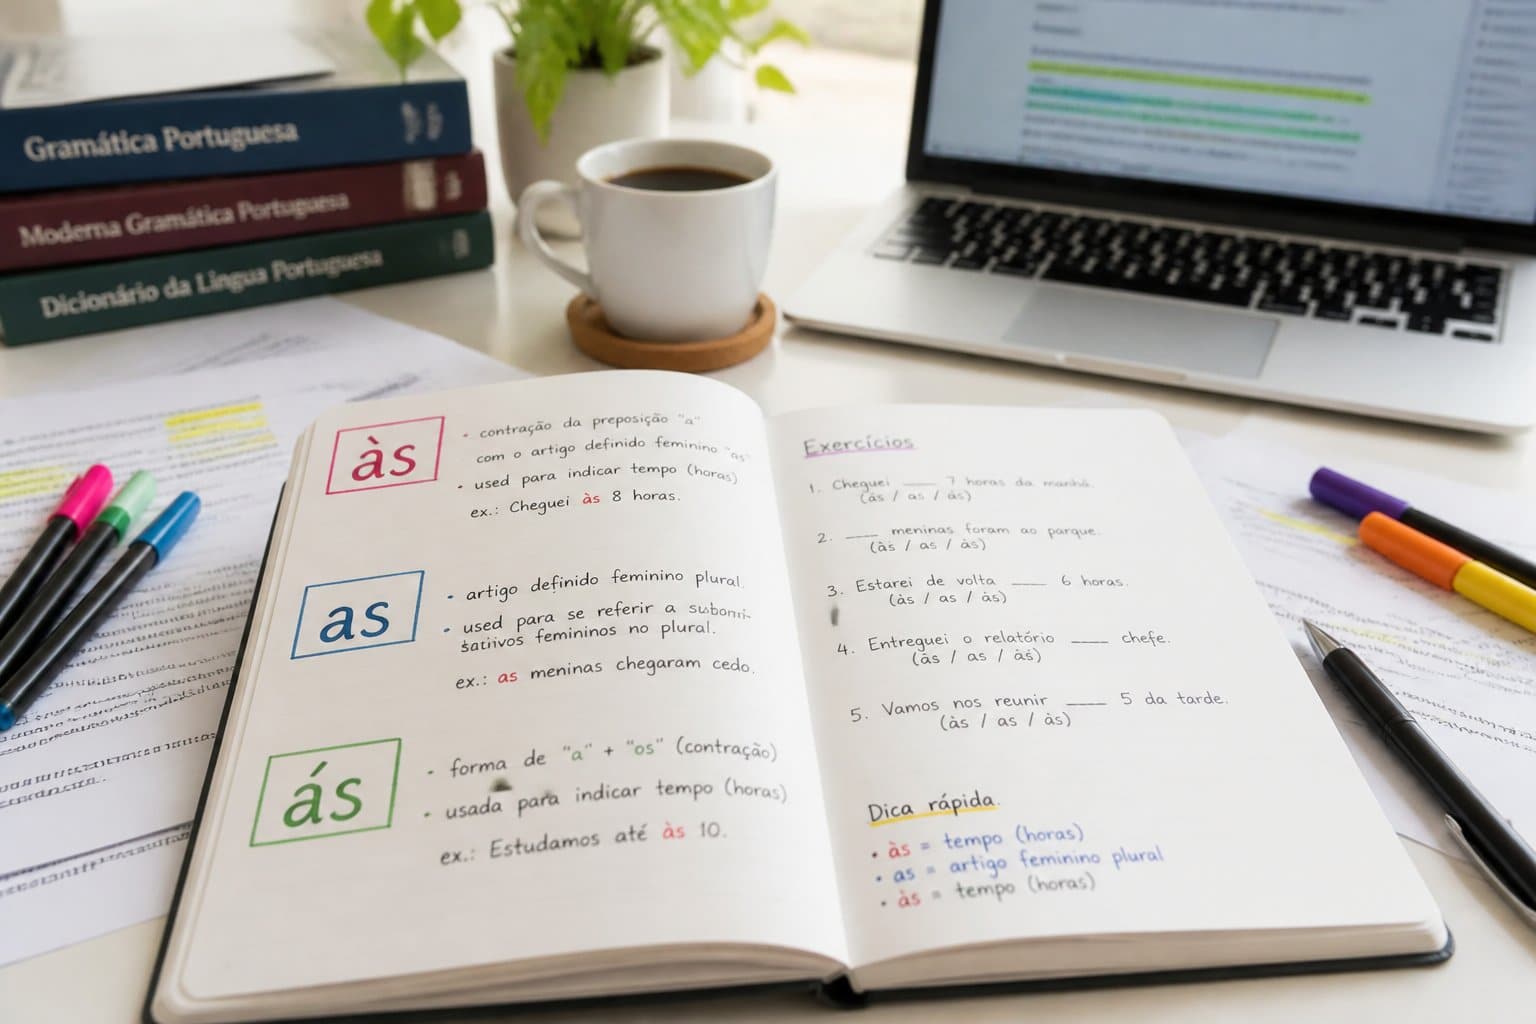 Gramática Portuguesa
Moderna Gramática Portuguesa
Dicionário da Língua Portuguesa
às
• contração da preposição "a"
com o artigo definido feminino "as"
• used para indicar tempo (horas)
ex.: Cheguei às 8 horas.
as
• artigo definido feminino plural.
• used para se referir a
femininos no plural.
ex.: as meninas chegaram cedo.
ás
• forma de "a" + "os" (contração)
• usada para indicar tempo (horas)
ex.: Estudamos até às 10.
Exercícios
1. Cheguei ____ 7 horas da manhã.
(ás / as / ás)
2. ____ meninas foram ao parque.
(às / as / às)
3. Estarei de volta ____ 6 horas.
(às / as / ás)
4. Entreguei o relatório ____ chefe.
(às / as / ás)
5. Vamos nos reunir ____ 5 da tarde.
(às / as / ás)
Dica rápida.
• às = tempo (horas)
• as = artigo feminino plural
• às = tempo (horas)